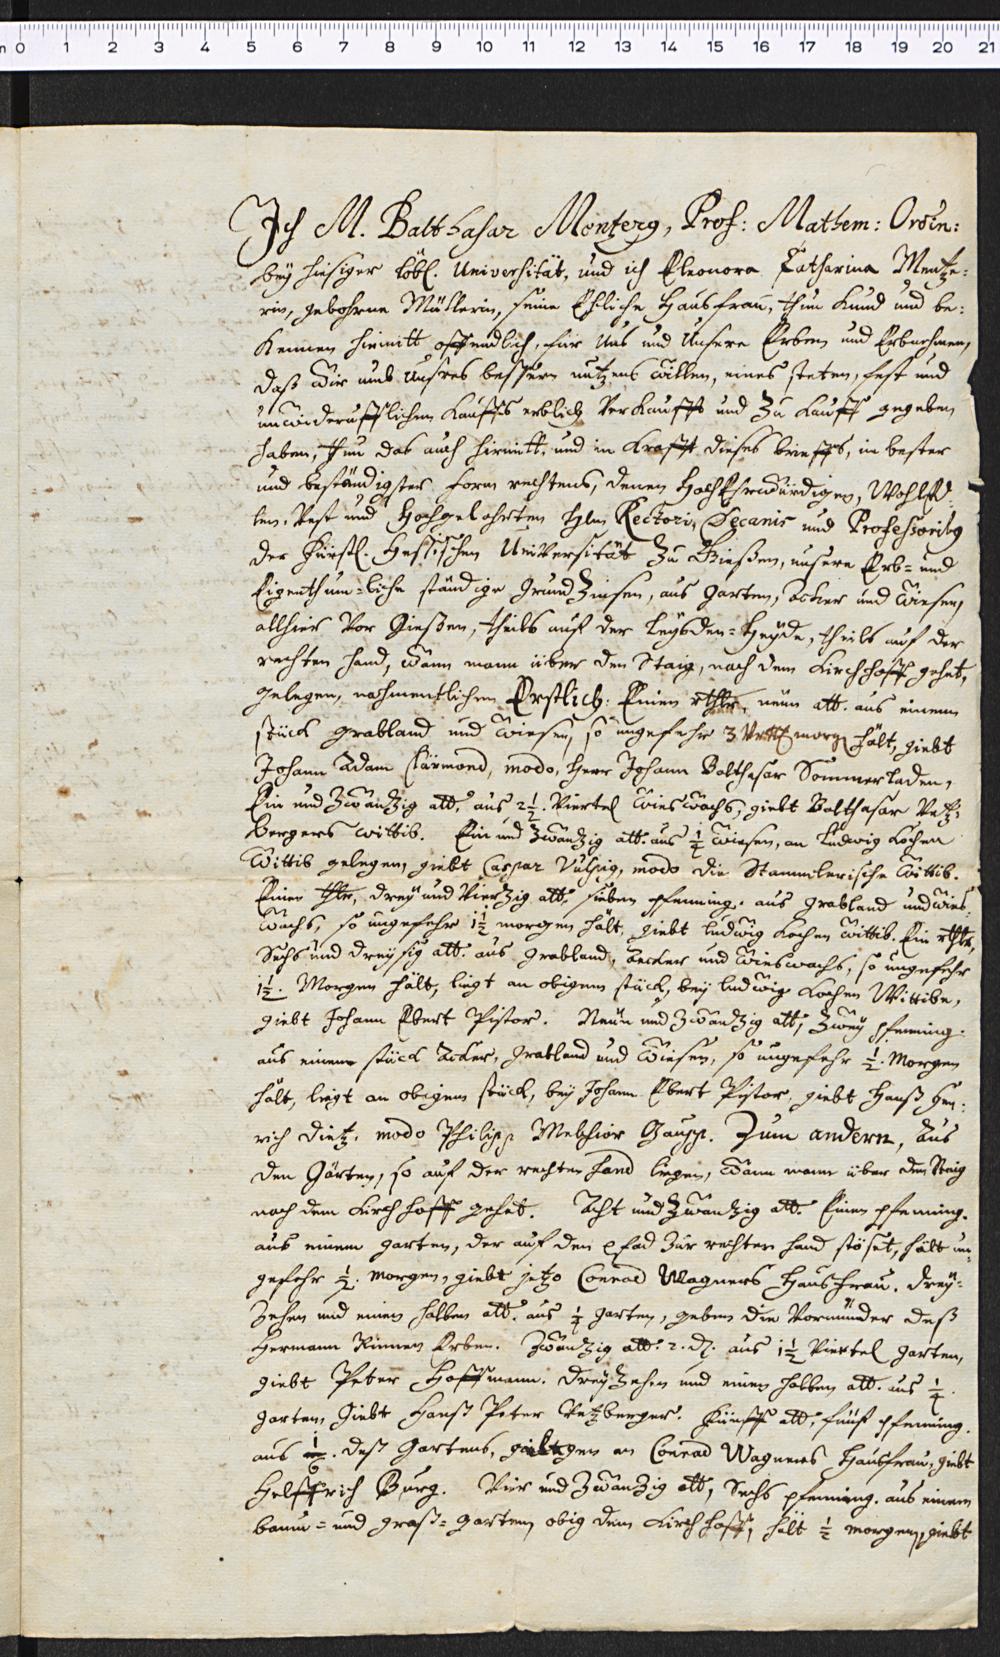 Ich M. Balthasar Mentzer, Prof: Mathem: Ordin:
bey hiesiger löbl. Universität, und ich Eleonora Catharina Mentze-
rin, gebohrne Müllerin, seine Ehliche Haußfrau, thun kund und be-
kennen hiermitt offendlich, für Uns und Unsere Erben und Erbnehmen,
daß wir umb Unsres bessern nutzens willen, eines steten, fest und
unwiderufflichen Kauffs erblich verkaufft und zu kauff gegeben
haben, thun das auch hirmitt, und in Krafft dieses brieffs, in bester
und beständigster form rechtens, denen HochEhrwürdigen, WohlEd-
len, Vest und Hochgelahrten Hhn Rectori, Decanis und Professoribus
der Fürstl. Hessischen Universität zu Gießen, unsere Erb- und
Eigenthum-liche ständige Grund Zinsen, aus garten, äcker und wiesen,
allhier vor Gießen, theils auf der Heyde, theils auf der
rechten hand, wann mann über den Staig, nach dem Kirchhoff gehet,
gelegen, nahmentlichen Erstlich: Einen rthlr, neun alb. aus einem
stück grabland und wiesen, so ungefehr 3 morg hält, giebt
Johann Adam modo, Herr Johann Balthasar Sommerladen,
Ein und zwantzig alb, aus 2½. Viertel wieswachs, giebt Balthasar Vetz-
bergers wittib. Ein und zwantzig alb. aus ½ wiesen, an Ludwig Kochen
wittib gelegen, giebt Caspar Vulpig, modo die Stammlerische wittib.
Einen thlr, drey und Viertzig alb, sieben pfenning. aus grabland und wies-
wachs, so ungefehr 1½ morgen hält, giebt Ludwig Kochen wittib. Ein rthlr,
Sechs und dreysig alb. aus grabland, äecker und wieswachs, so ungefehr
1½. Morgen hält, liegt an obigem stück, bey Ludwig Kochen Wittibe,
giebt Johann Ebert Pistor. Neun und zwantzig alb, zwey pfenning.
aus einem stück äcker, grabland und wiesen, so ungefehr ½. Morgen
hält, liegt an obigem stück, bey Johann Ebert Pistor, giebt Hanß Hen-
rich Dietz, modo Philipp Melchior Gaupp. Zum andern, aus
den Gärten, so auf der rechten hand liegen, wann mann über den Staig
nach dem Kirchhoff gehet. Acht und zwantzig alb. Einen pfenning.
aus einem garten, der auf den pfad zur rechten hand stöset, hält un-
gefehr ½. morgen, giebt jetzo Conrad Wagners Haußfrau. Drey-
zehen und einen halben alb. aus ¼ garten, geben die Vormünder deß
Hermann Rinnen Erben. Zwantzig alb. 2. d. aus 1½ Viertel garten,
giebt Peter Hoffmann. Dreyzehen und einen halben alb. aus ¼.
garten, giebt Hanß Peter Vetzberger. Fünff alb, fünf pfenning.
aus deß Gartens, gelegen an Conrad Wagners Haußfrau, giebt
Helffrich Burg. Vier und zwantzig alb, Sechs pfenning. aus einem
baum- und graß-garten obig dem Kirchhoff, hält ½ morgen, giebt